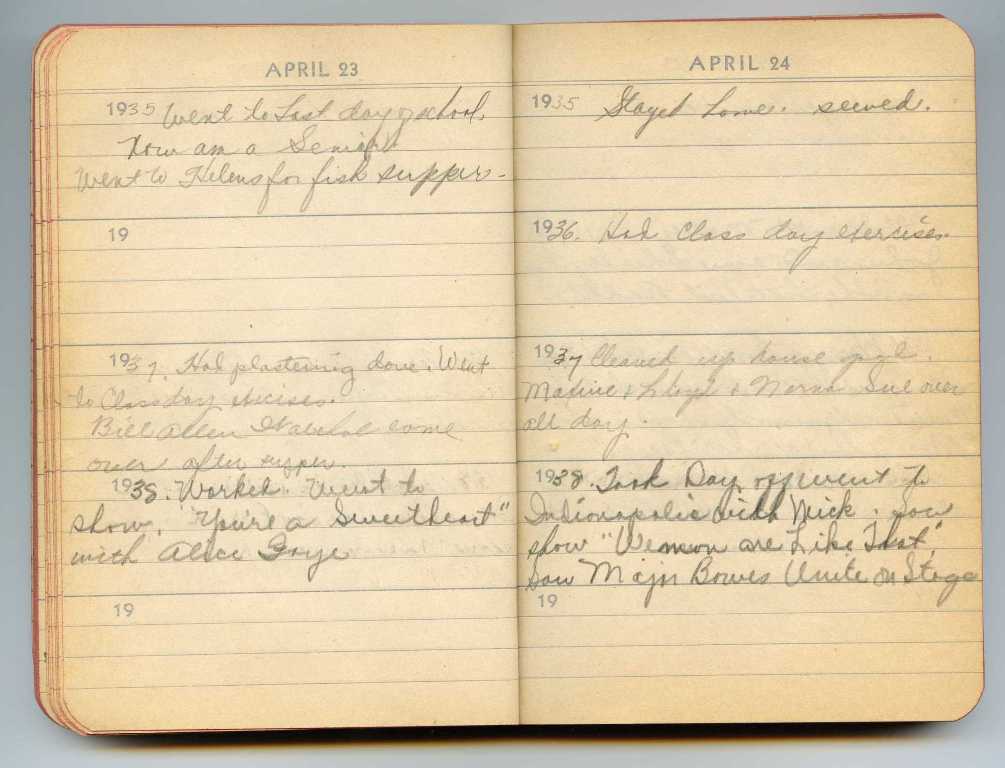 APRIL 23
1935 Went to Last day of school.
Now am a Senior.
Went to Helens for fish supper.
19
1937. Had plastering done. Went
to Class day
Bill Allen come
over after supper.
1938. Worked. Went to
show. "You're a Sweetheart"
with Alice Faye
19
APRIL 24
1935 Stayed home. sewed.
1936. Had Class day exercises.
1937 Cleaned up house
Maxine & Lloyd & Norma Sue over
all day.
1938. Took Day off went to
Indianapolis with Nick. Saw
show "Wemon are Like That".
Saw Major Bowes Unite on Stage
19